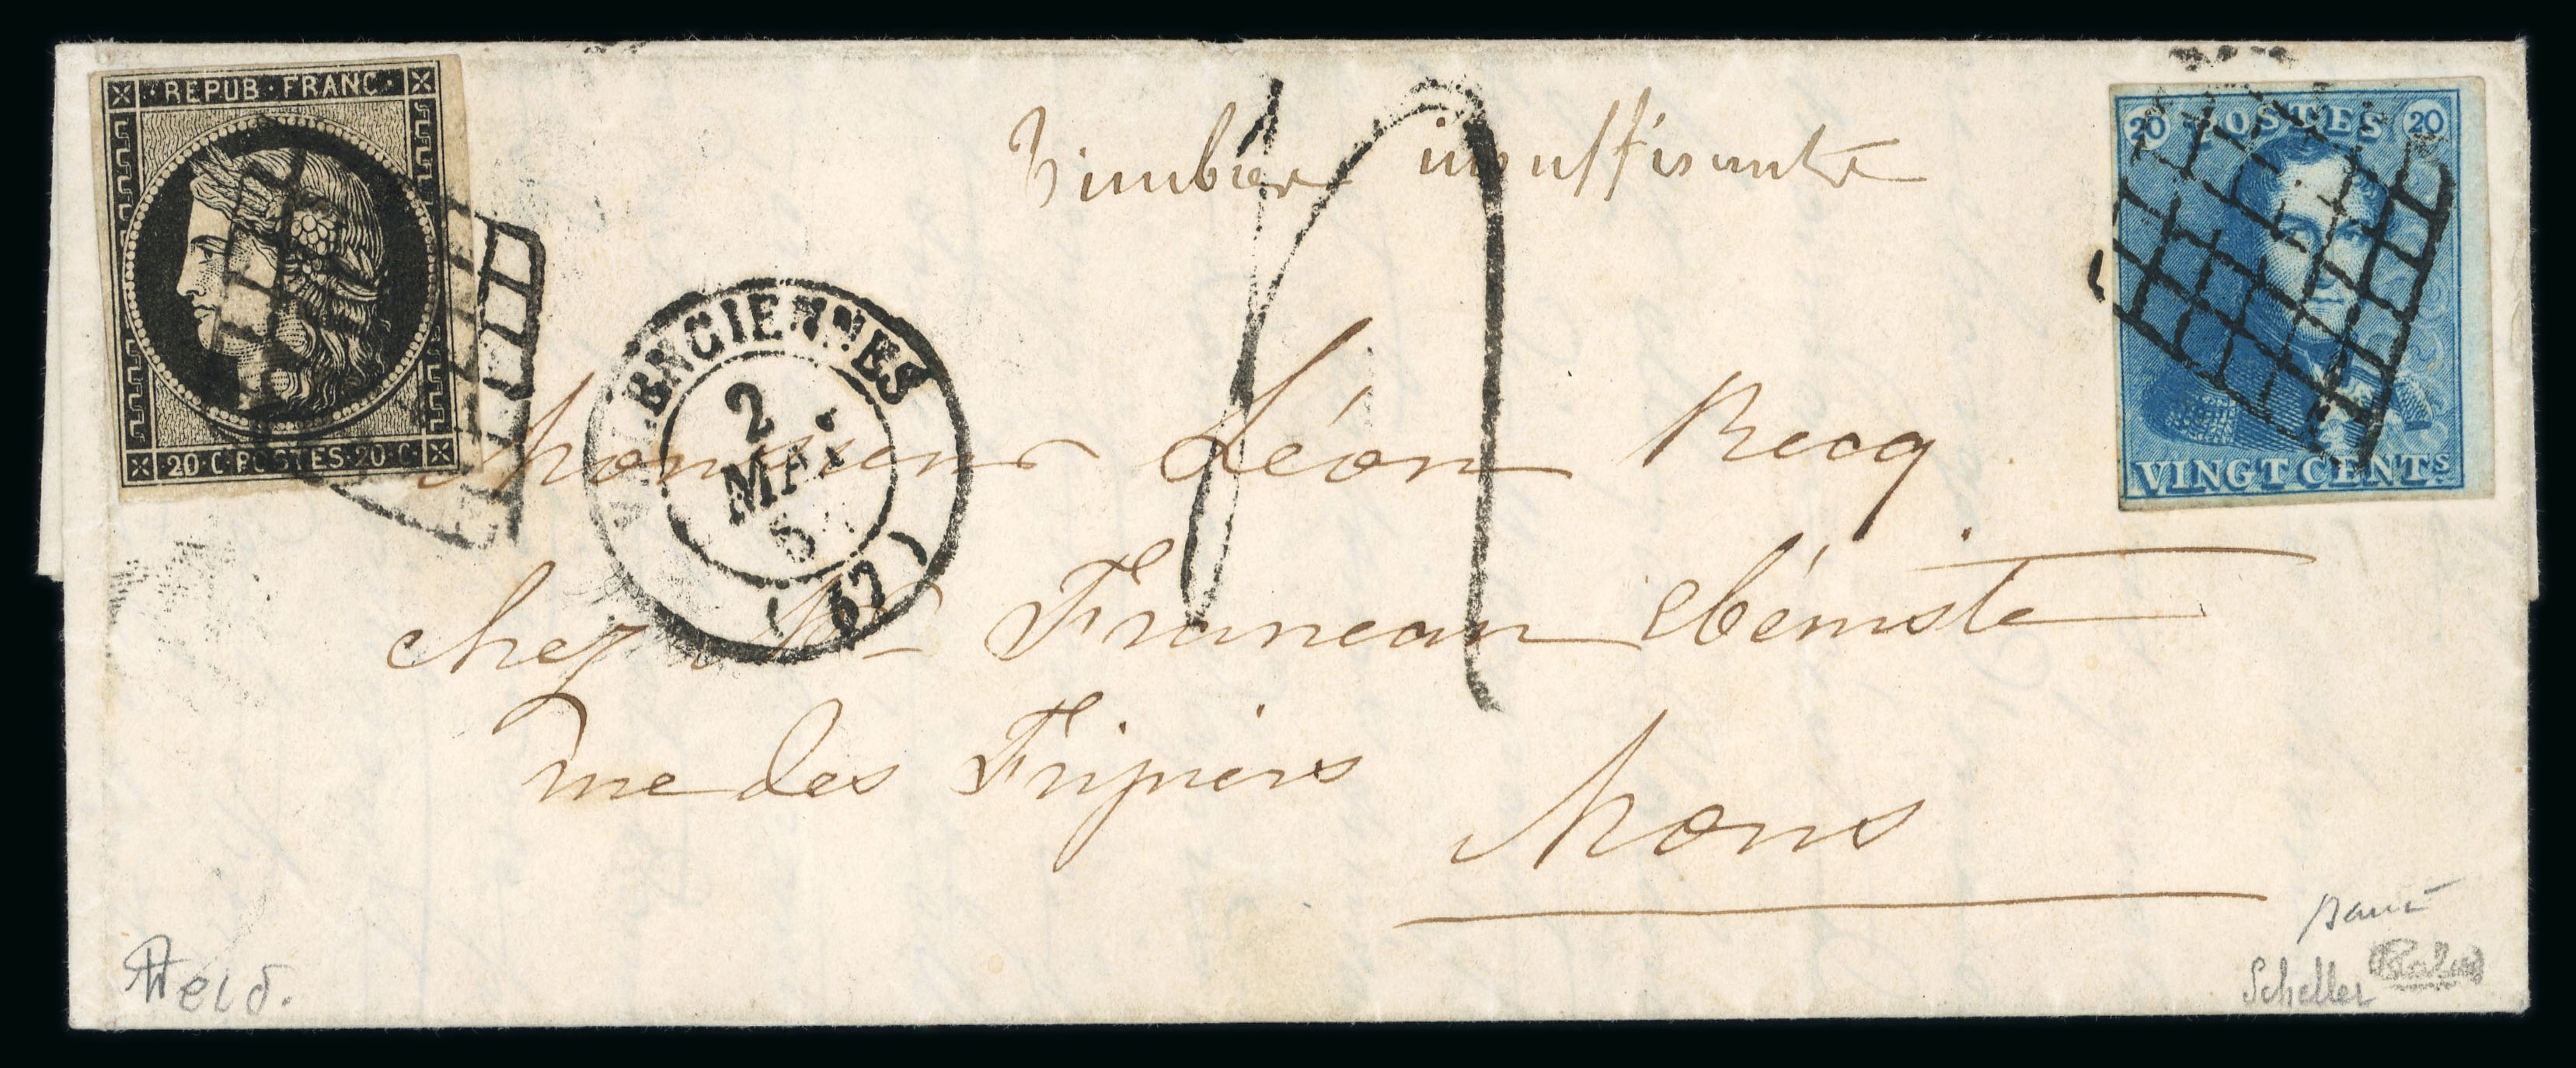 REPUB·FRANC·
20·C·POSTES·20·C·
20 POSTES 20
VINGT CENTS
Timbre insuffisante
VALENCIENNES
2
MAI
5
(57)
4
Monsieur Léon Recq
chez Mr Francau ebéniste
rue des Fripiers
Mons
Held.
Scheller